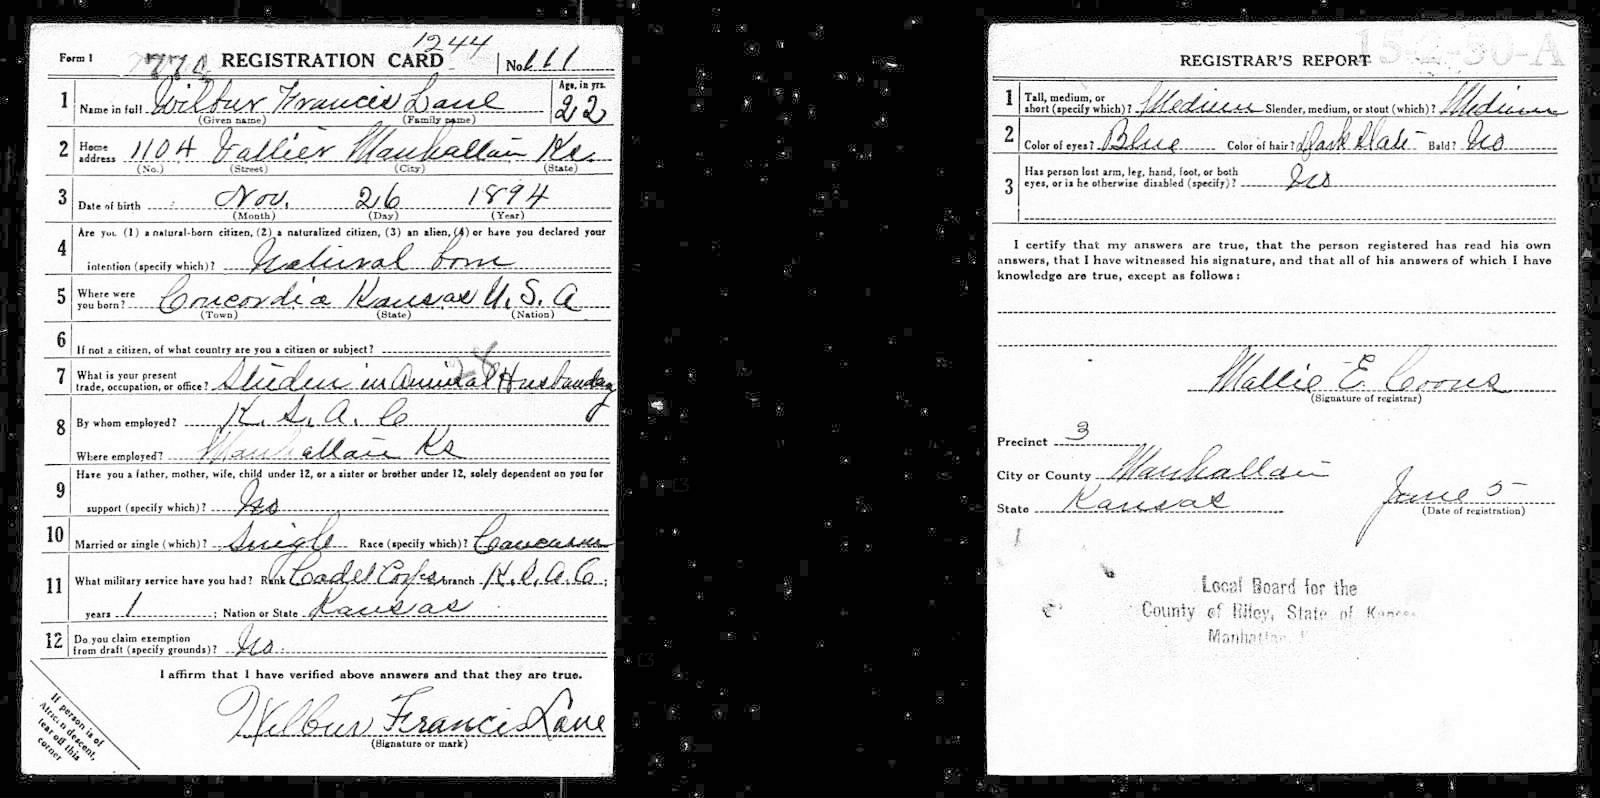 1244
Form 1 REGISTRATION CARD No. 111
1 Name in full Wilbur Francis Lane Age, in yrs. 22
(Given name) (Family name)
2 Home address 1104 Vattier Manhattan Ks.
(No.) (Street) (City) (State)
3 Date of birth Nov. 26 1894
(Month) (Day) (Year)
4 Are you (1) a natural-born citizen, (2) a naturalized citizen, (3) an alien, (4) or have you declared your
intention (specify which)? Natural born
5 Where were you born? Concordia Kansas U.S.A
(Town) (State) (Nation)
6 If not a citizen, of what country are you a citizen or subject?
28
7 What is your present trade, occupation, or office? Student in Animal Husbandry
8 By whom employed? K. S. A. C
Where employed? Manhattan Ks
9 Have you a father, mother, wife, child under 12, or a sister or brother under 12, solely dependent on you for
support (specify which)? No
10 Married or single (which)? Single Race (specify which)? Caucasian
11 What military service have you had? Rank Cadet Corps; branch K.S.A.C.;
years 1; Nation or State Kansas
12 Do you claim exemption from draft (specify grounds)? No.
I affirm that I have verified above answers and that they are true.
Wilbur Francis Lane
(Signature or mark)
If person is of
African descent,
tear off this
corner
15-2-30-A
REGISTRAR'S REPORT
1 Tall, medium, or short (specify which)? Medium Slender, medium, or stout (which)? Medium
2 Color of eyes? Blue Color of hair? Dark Bald? No
3 Has person lost arm, leg, hand, foot, or both
eyes, or is he otherwise disabled (specify)? No
I certify that my answers are true, that the person registered has read his own
answers, that I have witnessed his signature, and that all of his answers of which I have
knowledge are true, except as follows:
Mallie E. Coons
(Signature of registrar)
Precinct 3
City or County Manhattan
State Kansas June 5
(Date of registration)
Local Board for the
County of Riley, State of Kansas
Manhattan,